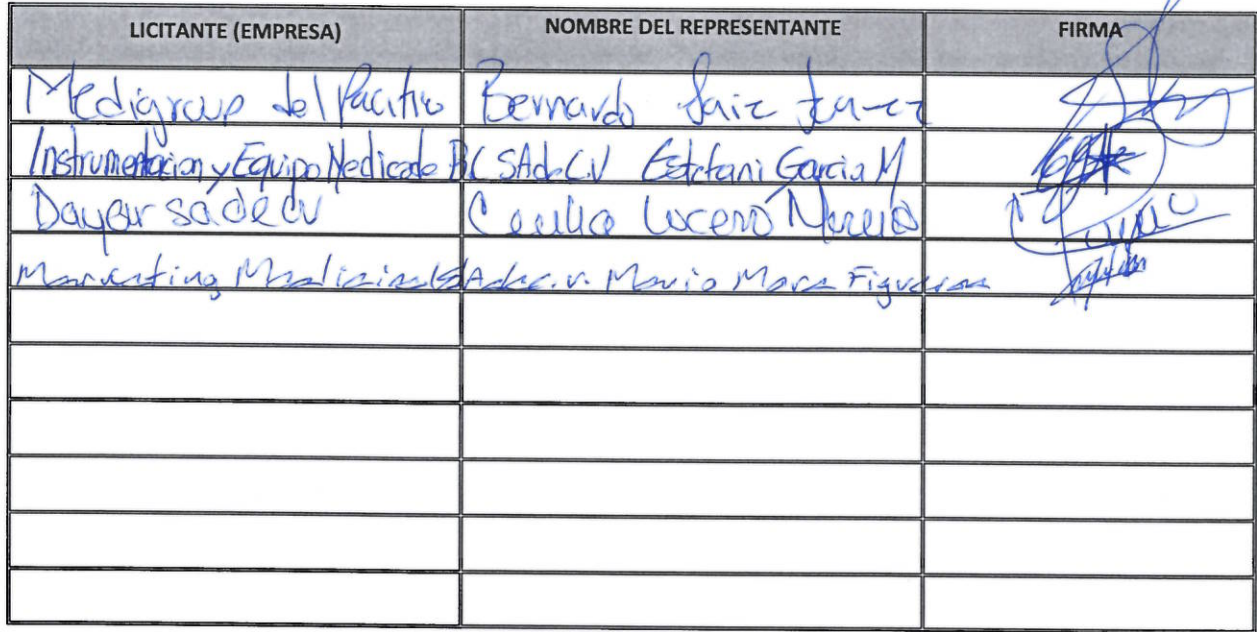 LICITANTE (EMPRESA) NOMBRE DEL REPRESENTANTE FIRMA
Medigroup del Pacifico Bernardo Saiz
Instrumentacion y Equipo Medico de BC SA de CV Estefani Garcia M
Dayar sa de cv Cecilia Lucero Moreno
Marketing Medicinal SA de c.v. Mario Mora Figueroa